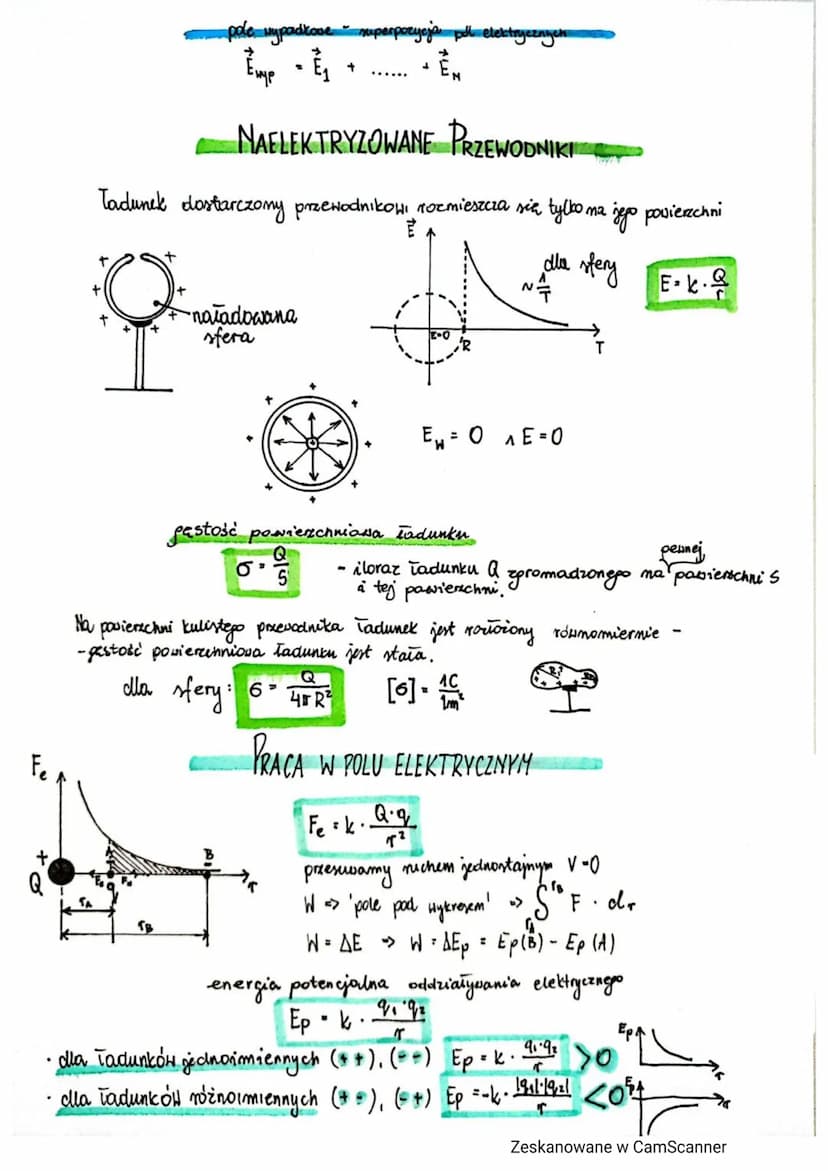 pole wypadkowe - superpozycja pól elektrycznych
E⃗wyp = E⃗1 + ...... + E⃗N
NAELEKTRYZOWANE PRZEWODNIKI
Ładunek dostarczony przewodnikowi rozmieszcza się tylko na jego powierzchni
E⃗
dla sfery
~ 1/r
E = k · Q/r
naładowana
sfera
E=0
R
r
Ew = 0 ∧ E = 0
gęstość powierzchniowa ładunku
σ = Q/S
- iloraz ładunku Q zgromadzonego na pewnej powierzchni S
i tej powierzchni.
Na powierzchni kulistego przewodnika ładunek jest rozłożony równomiernie -
- gęstość powierzchniowa ładunku jest stała.
dla sfery: σ = Q/4πR² [σ] = 1C/1m²
PRACA W POLU ELEKTRYCZNYM
Fe
Fe = k · Q·q/r²
+
Q
A
B
r
rA
rB
przesuwamy ruchem jednostajnym V=0
W => 'pole pod wykresem' => ∫ rA rB F · dr
W = ΔE => W = ΔEp = Ep(B) - Ep(A)
energia potencjalna oddziaływania elektrycznego
Ep = k · q1·q2/r
· dla ładunków jednoimiennych (++), (--) Ep = k · q1·q2/r >0
Ep
r
· dla ładunków różnoimiennych (+-), (-+) Ep = -k · |q1|·|q2|/r <0
Ep
r
Zeskanowane w CamScanner